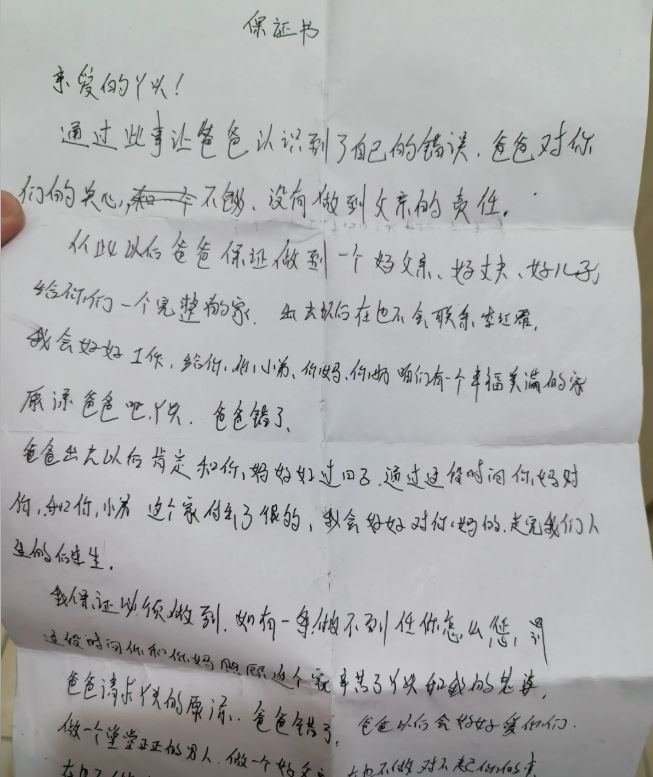 保证书
亲爱的丫头!
通过此事让爸爸认识到了自己的错误,爸爸对你
们的关心,不够、没有做到父亲的责任。
从此以后爸爸保证做到一个好父亲、好丈夫、好儿子,
给你们一个完整的家. 出去以后在也不会联系李
我会好好工作,给你,你小弟、你妈、你奶咱们有一个幸福美满的家
原谅爸爸吧,丫头,爸爸错了、
爸爸出去以后肯定和你,妈好好过日子,通过这段时间你,妈对
你,和你,小弟 这个家付出了很的,我会好好对你,妈的.走完我们人
生的后半生.
我保证必须做到.如有一条做不到任你怎么
这段时间你和你妈照顾这个家辛苦了丫头
爸爸请求丫头的原谅.爸爸错了,爸爸以后会好好爱你们.
做一个堂堂正正的男人.做一个好父
在也不做对不起你们的事